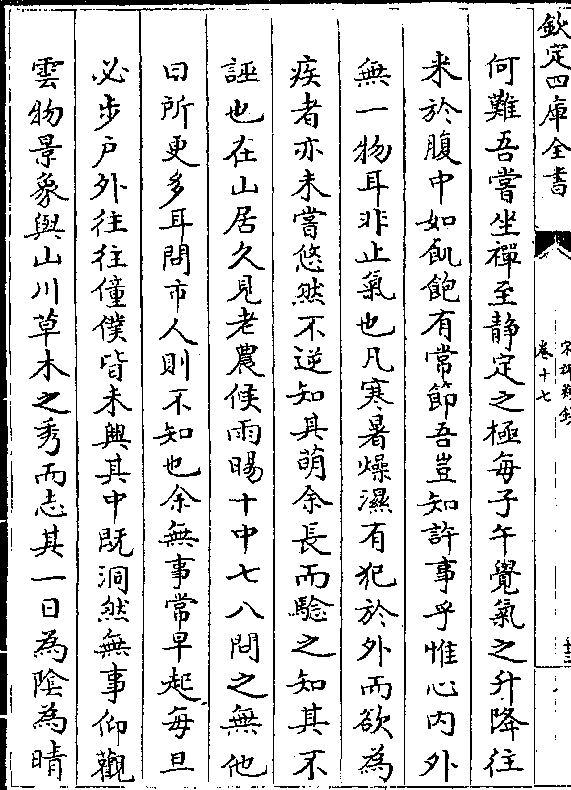 欽定四庫全書
宋稗類鈔
卷十七
何難吾嘗坐禪至静定之極每子午覺氣之升降往
来於腹中如飢飽有常節吾豈知許事乎惟心内外
無一物耳非止氣也凡寒暑燥濕有犯於外而欲為
疾者亦未嘗悠然不逆知其萌余長而驗之知其不
誣也在山居久見老農候雨暘十中七八問之無他
曰所更多耳問市人則不知也余無事常早起每旦
必步戸外往往僮僕皆未興其中既洞然無事仰觀
雲物景象與山川草木之秀而志其一日為陰為晴